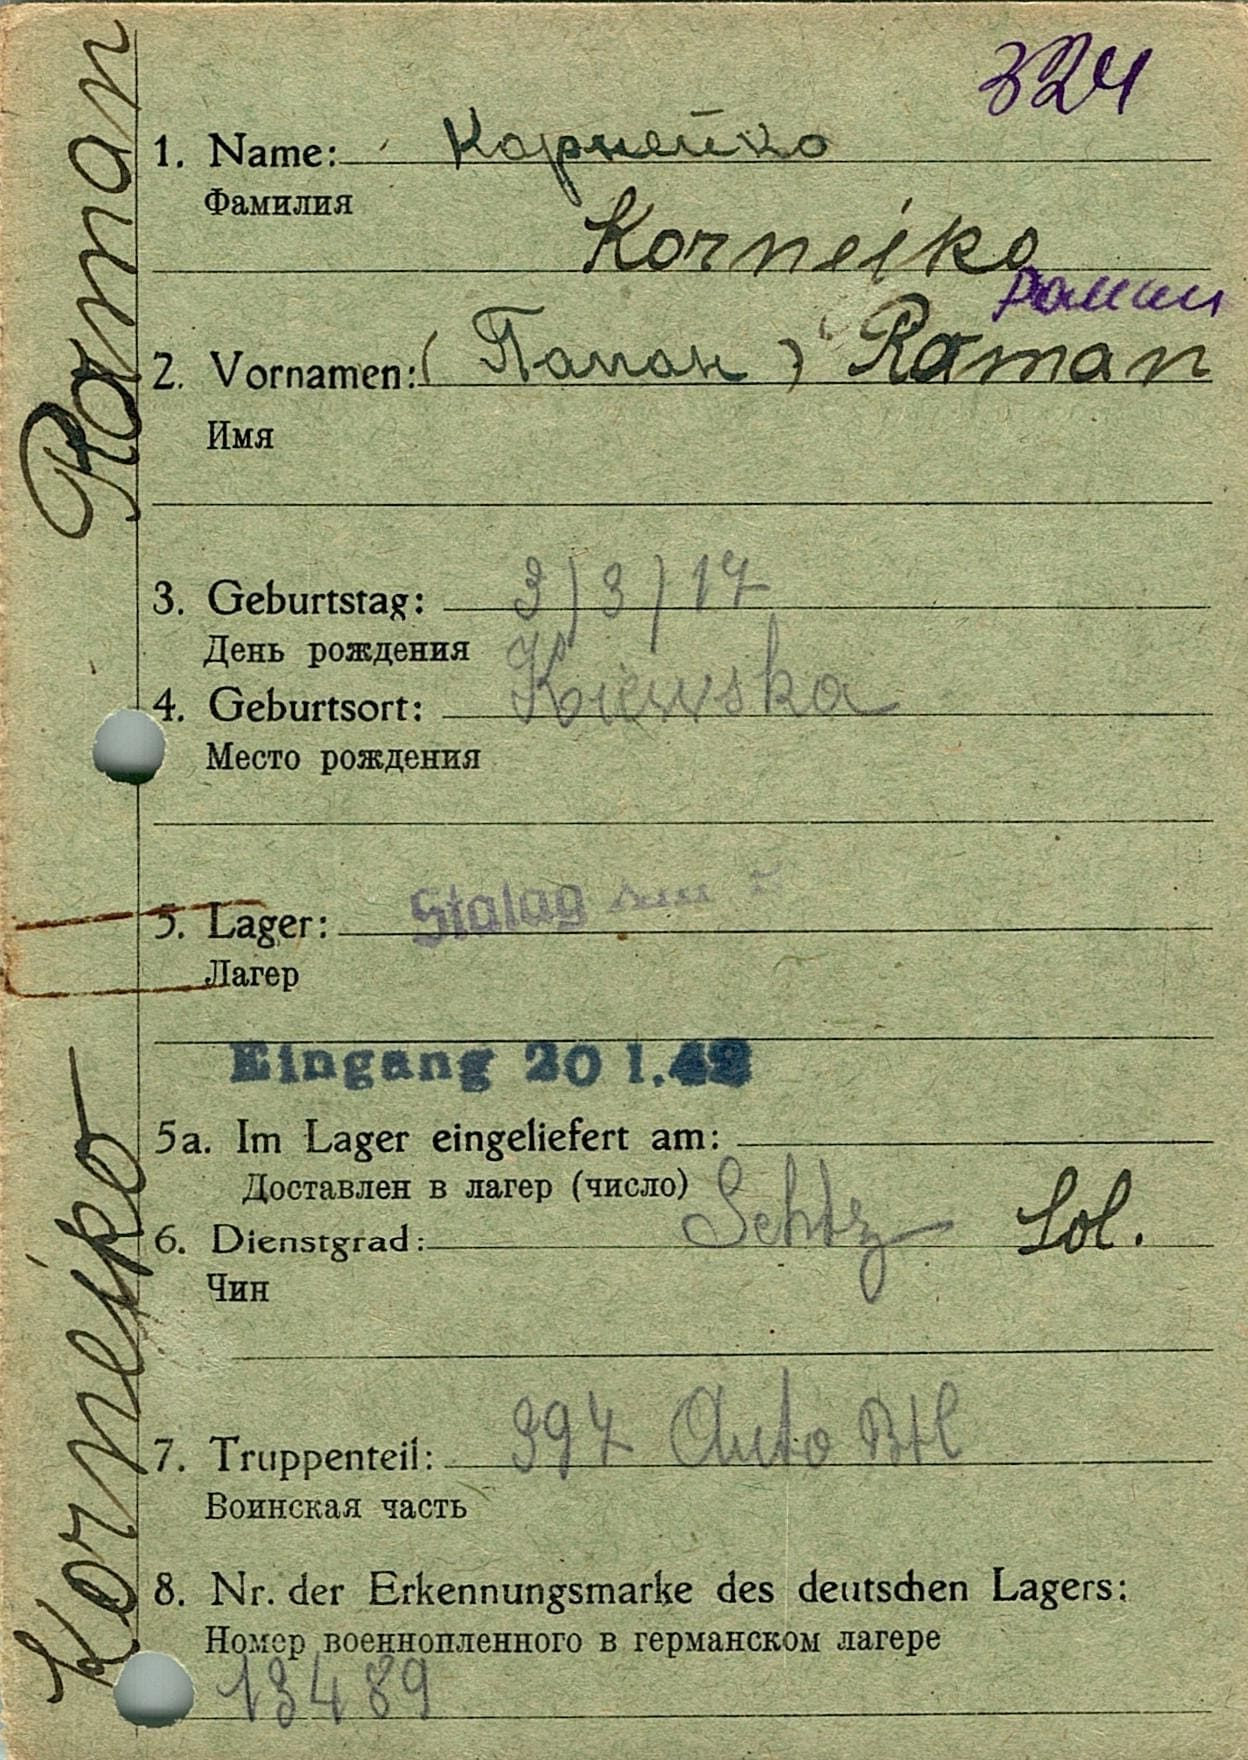 324
1. Name: Корнейко
Фамилия
Korneiko
Роман
2. Vornamen: (Папан) Roman
Имя
3. Geburtstag: 3/3/17
День рождения
4. Geburtsort: Kiewska
Место рождения
5. Lager: Stalag
Лагер
Eingang 20 1.42
5a. Im Lager eingeliefert am:
Доставлен в лагер (число)
6. Dienstgrad: Schtz Sol.
Чин
7. Truppenteil: 397 Auto Btl
Воинская часть
8. Nr. der Erkennungsmarke des deutschen Lagers:
Номер военнопленного в германском лагере
13489
Korneiko Roman